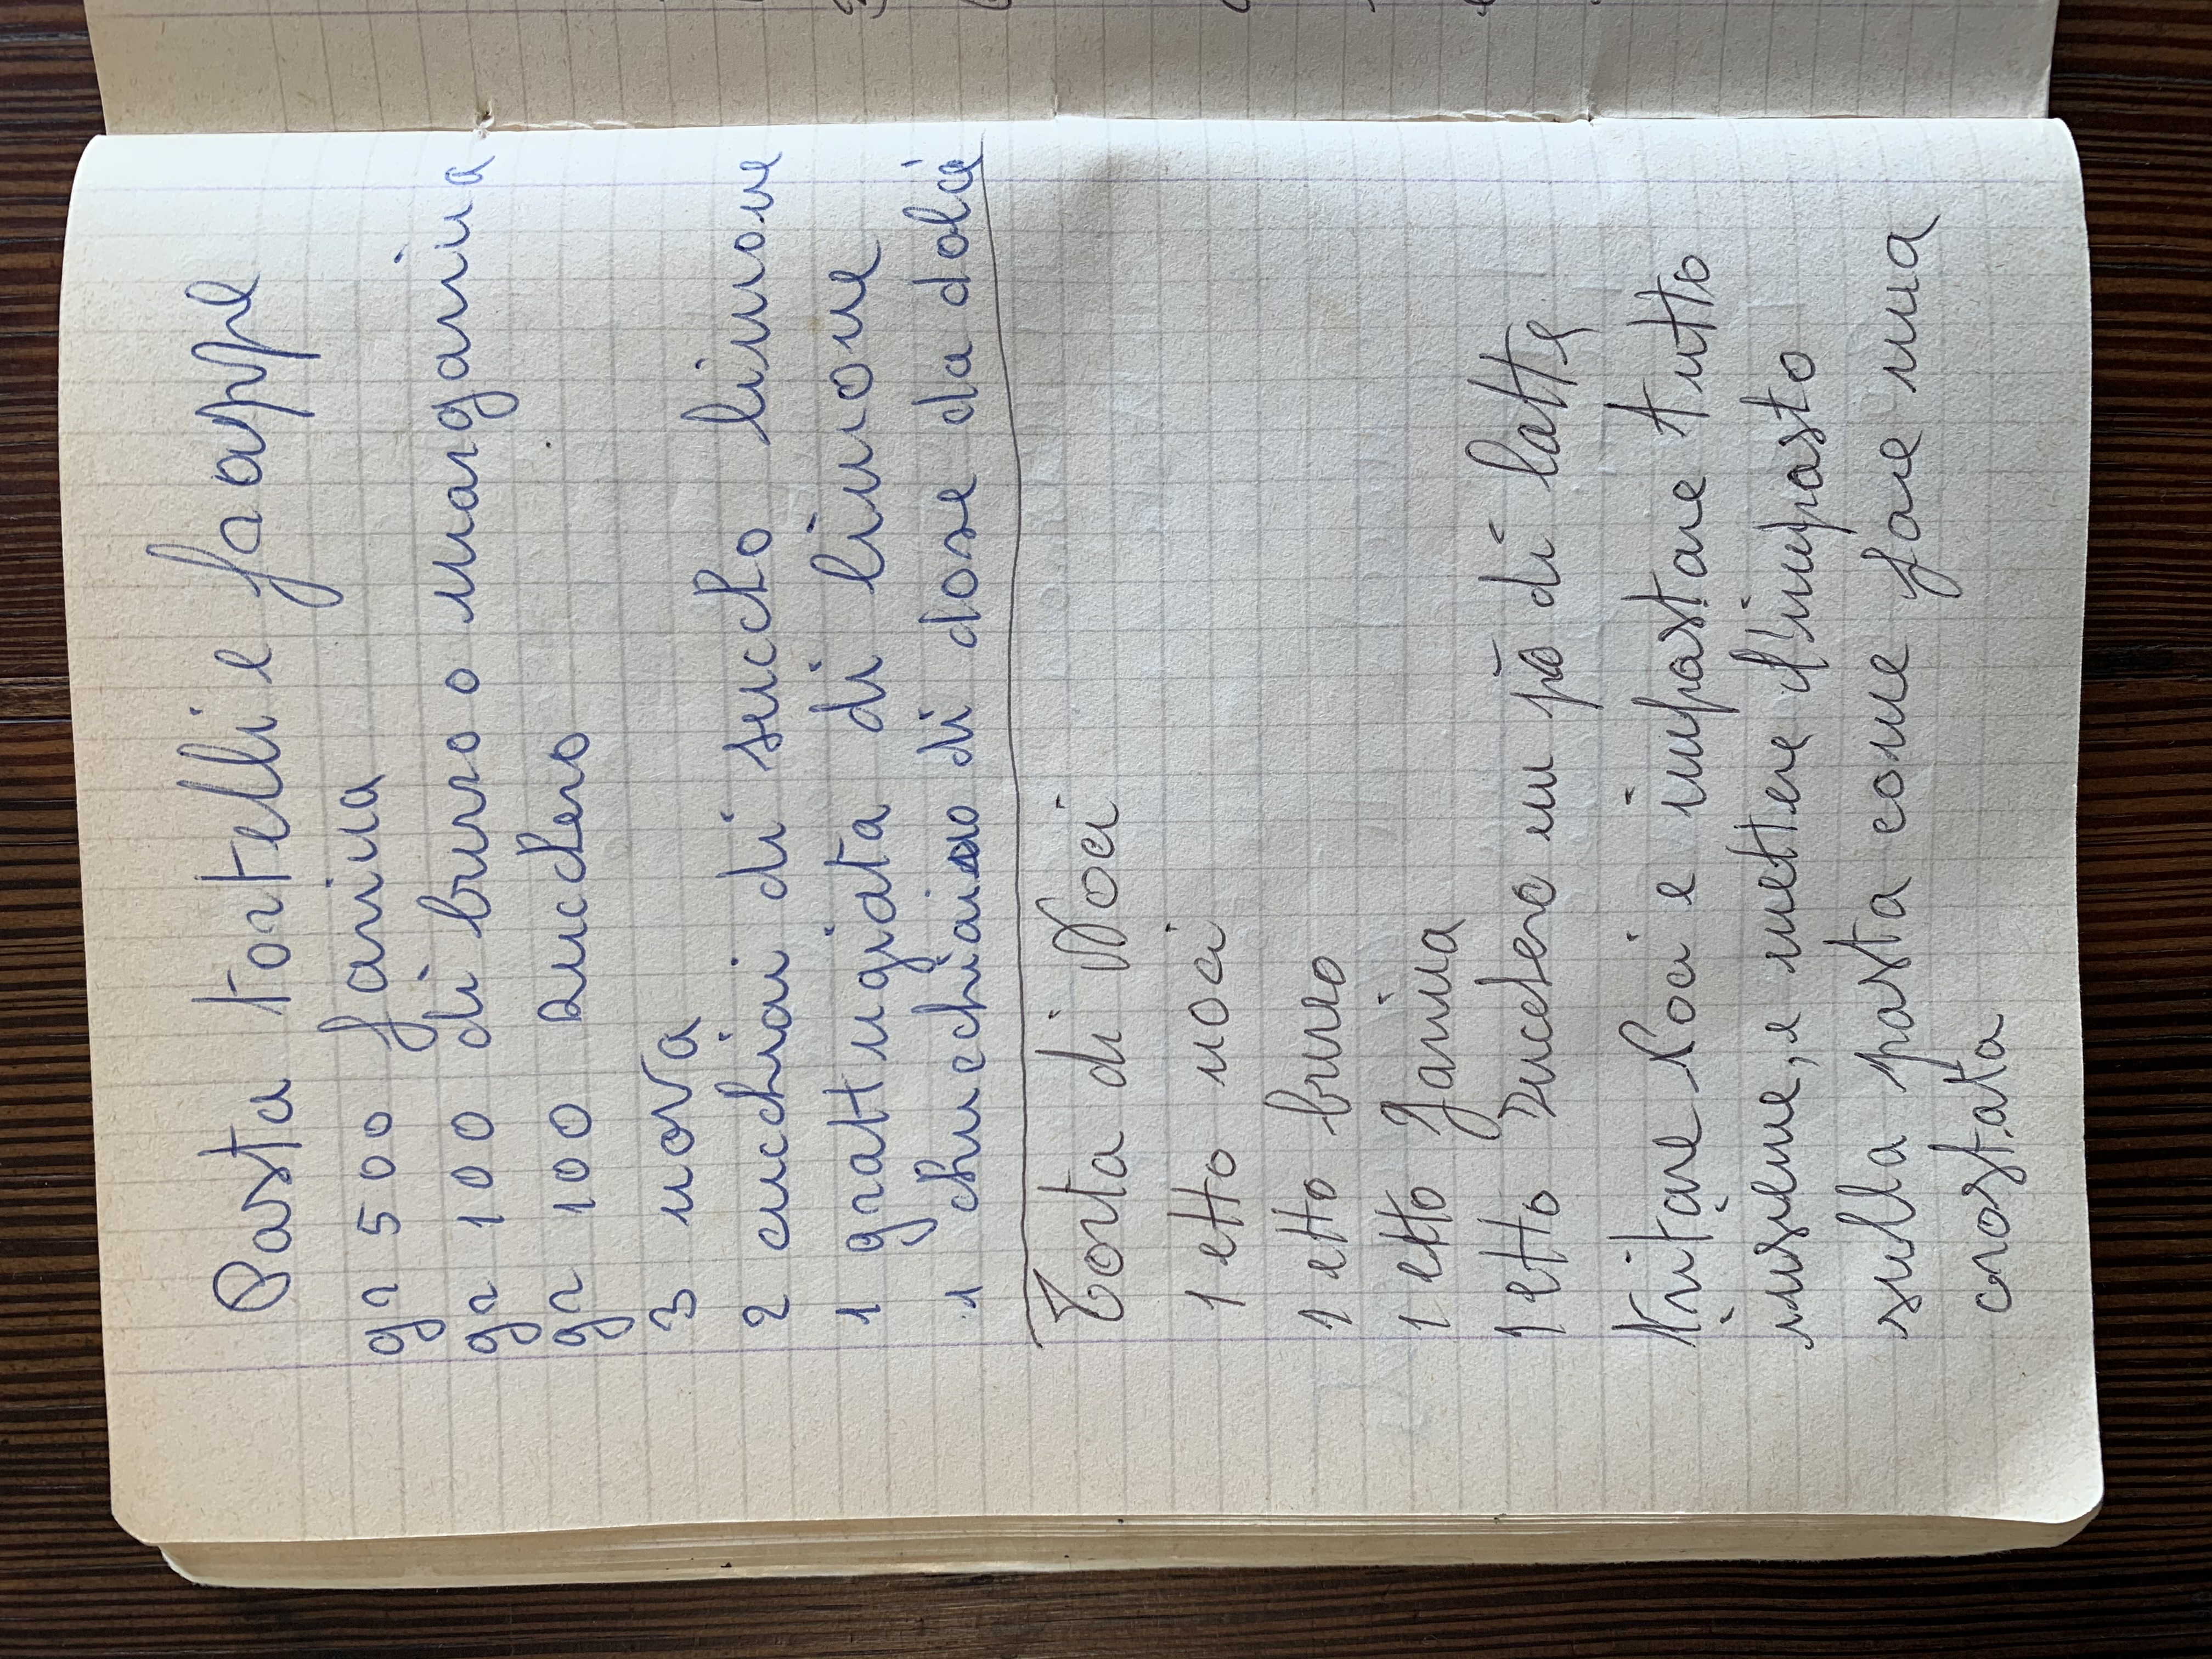 Pasta tortelli e frappe
gr 500 farina
gr 100 di burro o margarina
gr 100 zucchero
3 uova
2 cucchiai di succho limone
1 grattugiata di limone
1 chucchiaino di dose da dolci
Torta di Noci
1 etto noci
1 etto burro
1 etto farina
1 etto zucchero un pò di latte
tritare Noci e impastare tutto
insieme, e mettere l'impasto
sulla pasta come fare una
crostata